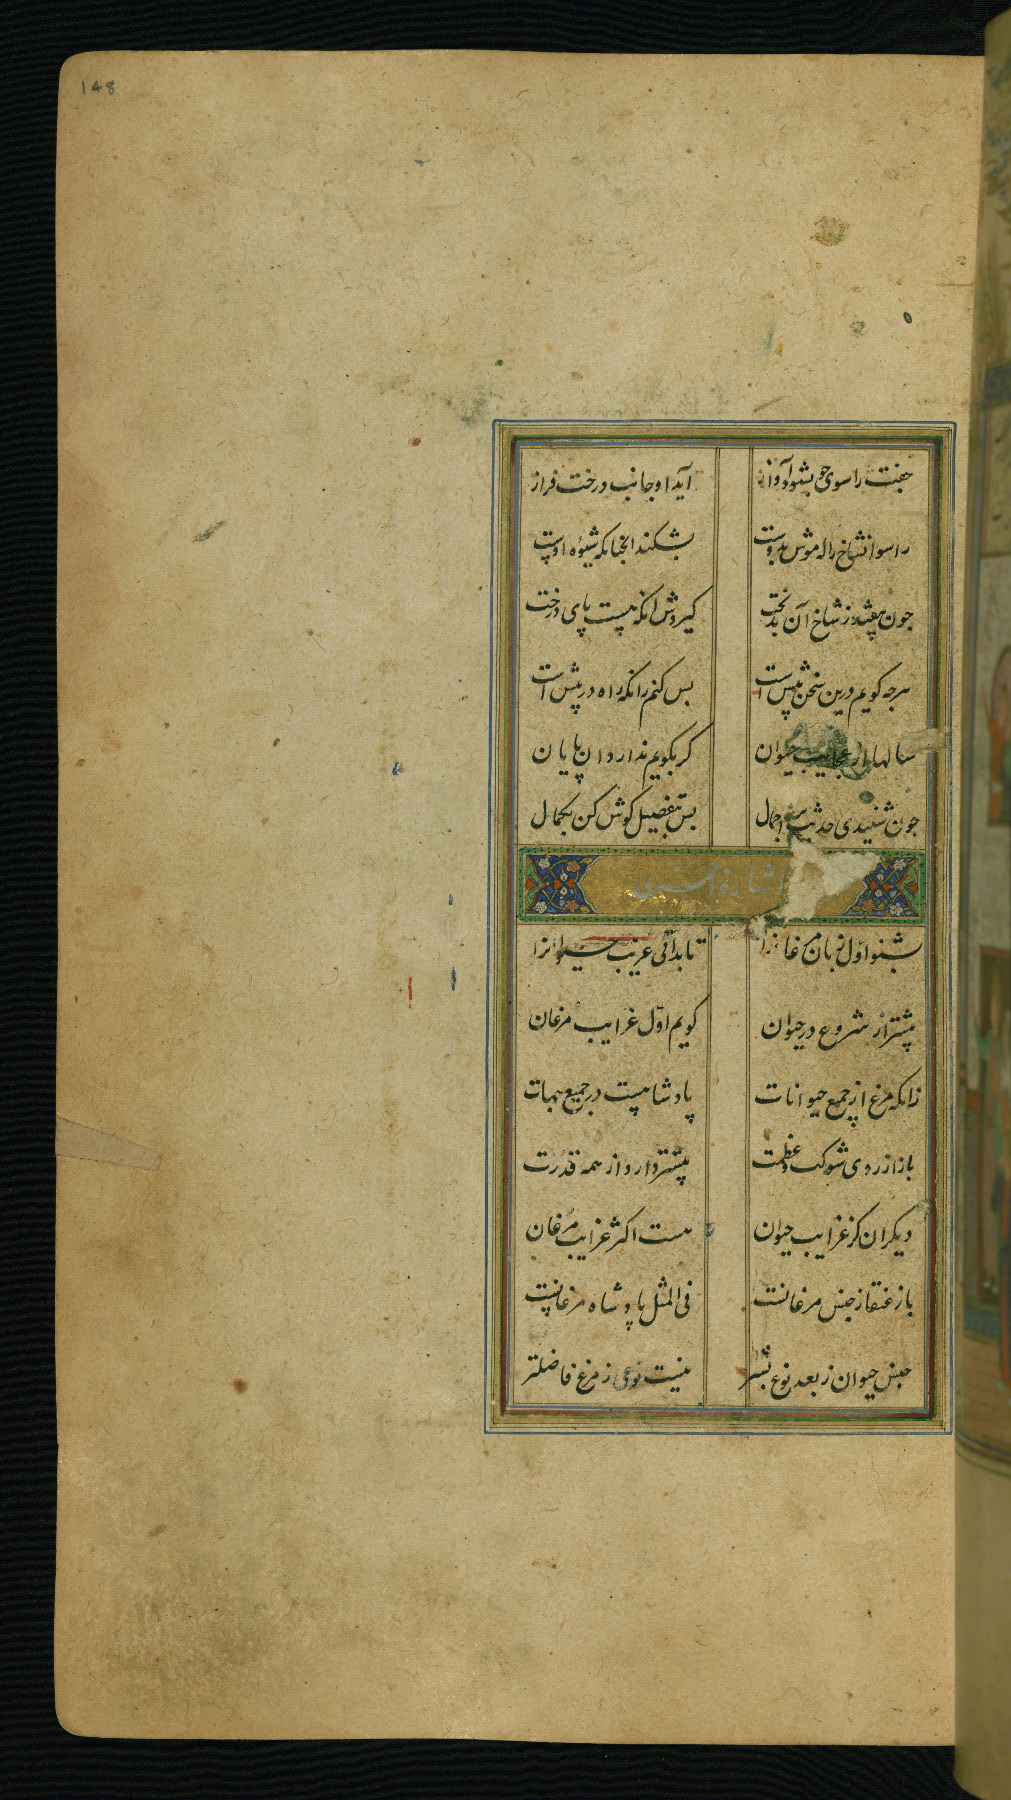 148
جفت راسوی چو بشنود آواز آید او جانب درخت فراز
راسو آن شاخ را که موش بدوست بشکند آنچنانکه شیوه اوست
چون بیفتد ز شاخ آن بدبخت گیردش آنکه هست پای درخت
هرچه گویم درین سخن بیش است بس کنم زانکه راه در پیش است
سالها از عجایب حیوان گر بگویم ندارد آن پایان
چون شنیدی حدیث اجمال پس بتفصیل گوش کن بکمال
بشنو اول زبان مرغانرا تا بدانی غریب حیوانرا
پیشتر از شروع در حیوان گویم اول غرایب مرغان
زانکه مرغ از جمیع حیوانات پادشاهست در جمیع جهات
باز از روی شوکت و عظمت بیشتر دارد از همه قدرت
دیگر آن کز غرایب حیوان هست اکثر غرایب مرغان
باز عنقا ز جنس مرغانست فی المثل پادشاه مرغانست
جنس حیوان ز بعد نوع بشر نیست نوعی ز مرغ فاضلتر